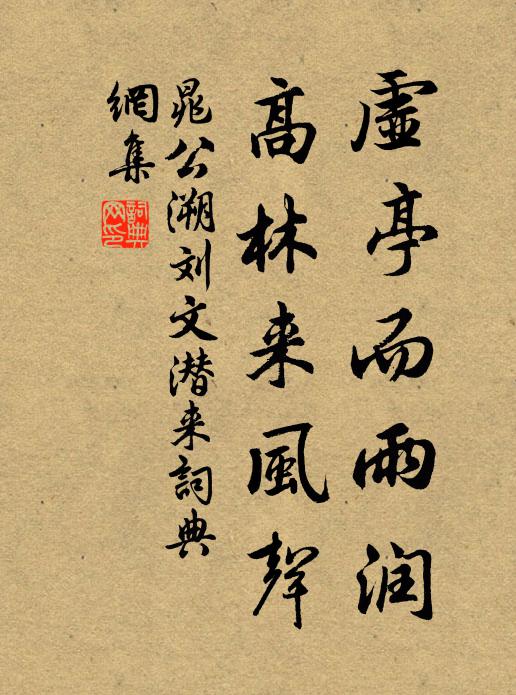 虛亭而雨润
髙林来風聲
晁公溯刘文潜来詞典
網集
詞典
网印